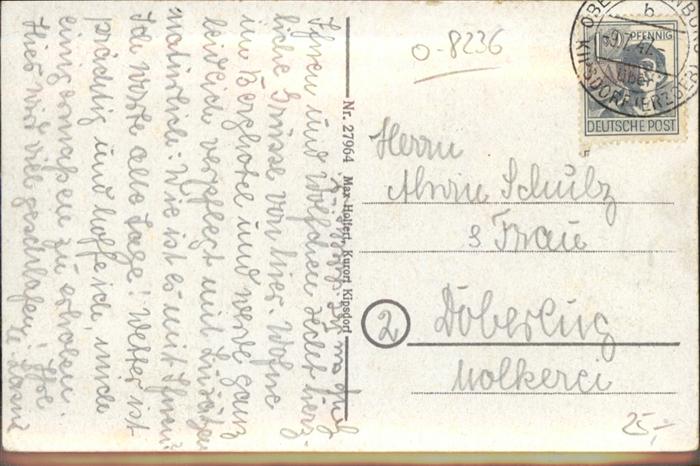 Ihnen und Wölfchen recht herz-
liche Grüsse von hier. Wohne
im Berghotel und werde ganz
leidlich verpflegt mit
natürlich. Wie ist es mit Ihnen?
Ich warte alle Tage! Wetter ist
prächtig und hoffe ich, mich
einigermaßen zu erholen.
Hier wird viel geschlafen! Ihre
Nr. 27964 Max Holfert, Kurort Kipsdorf
O-8236
b
9. 47
KIPSDORF (ERZGEB)
PFENNIG
DEUTSCHE POST
Herrn
Alwin Schulz
s Frau
② Döberlug
Molkerei
25,-